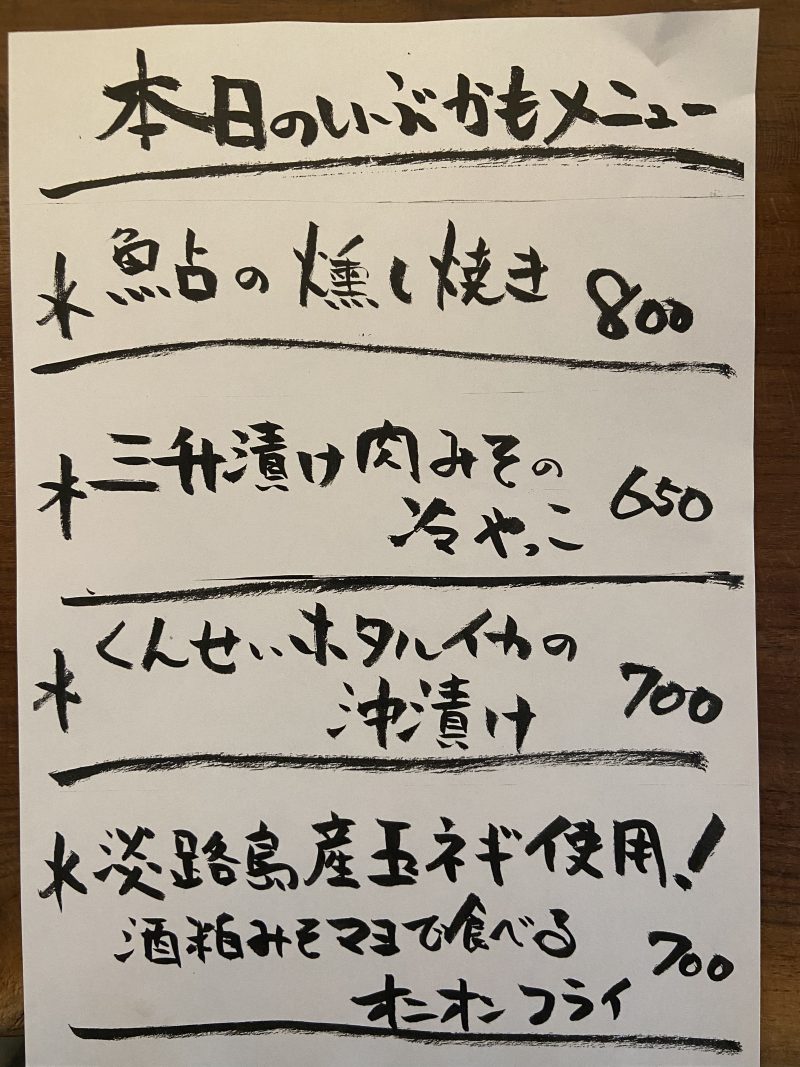 本日のいぶかもメニュー
* 鮎の燻し焼き 800
* 三升漬け肉みその
冷やっこ 650
* くんせいホタルイカの
沖漬け 700
* 淡路島産玉ネギ使用!
酒粕みそマヨで食べる 700
オニオンフライ